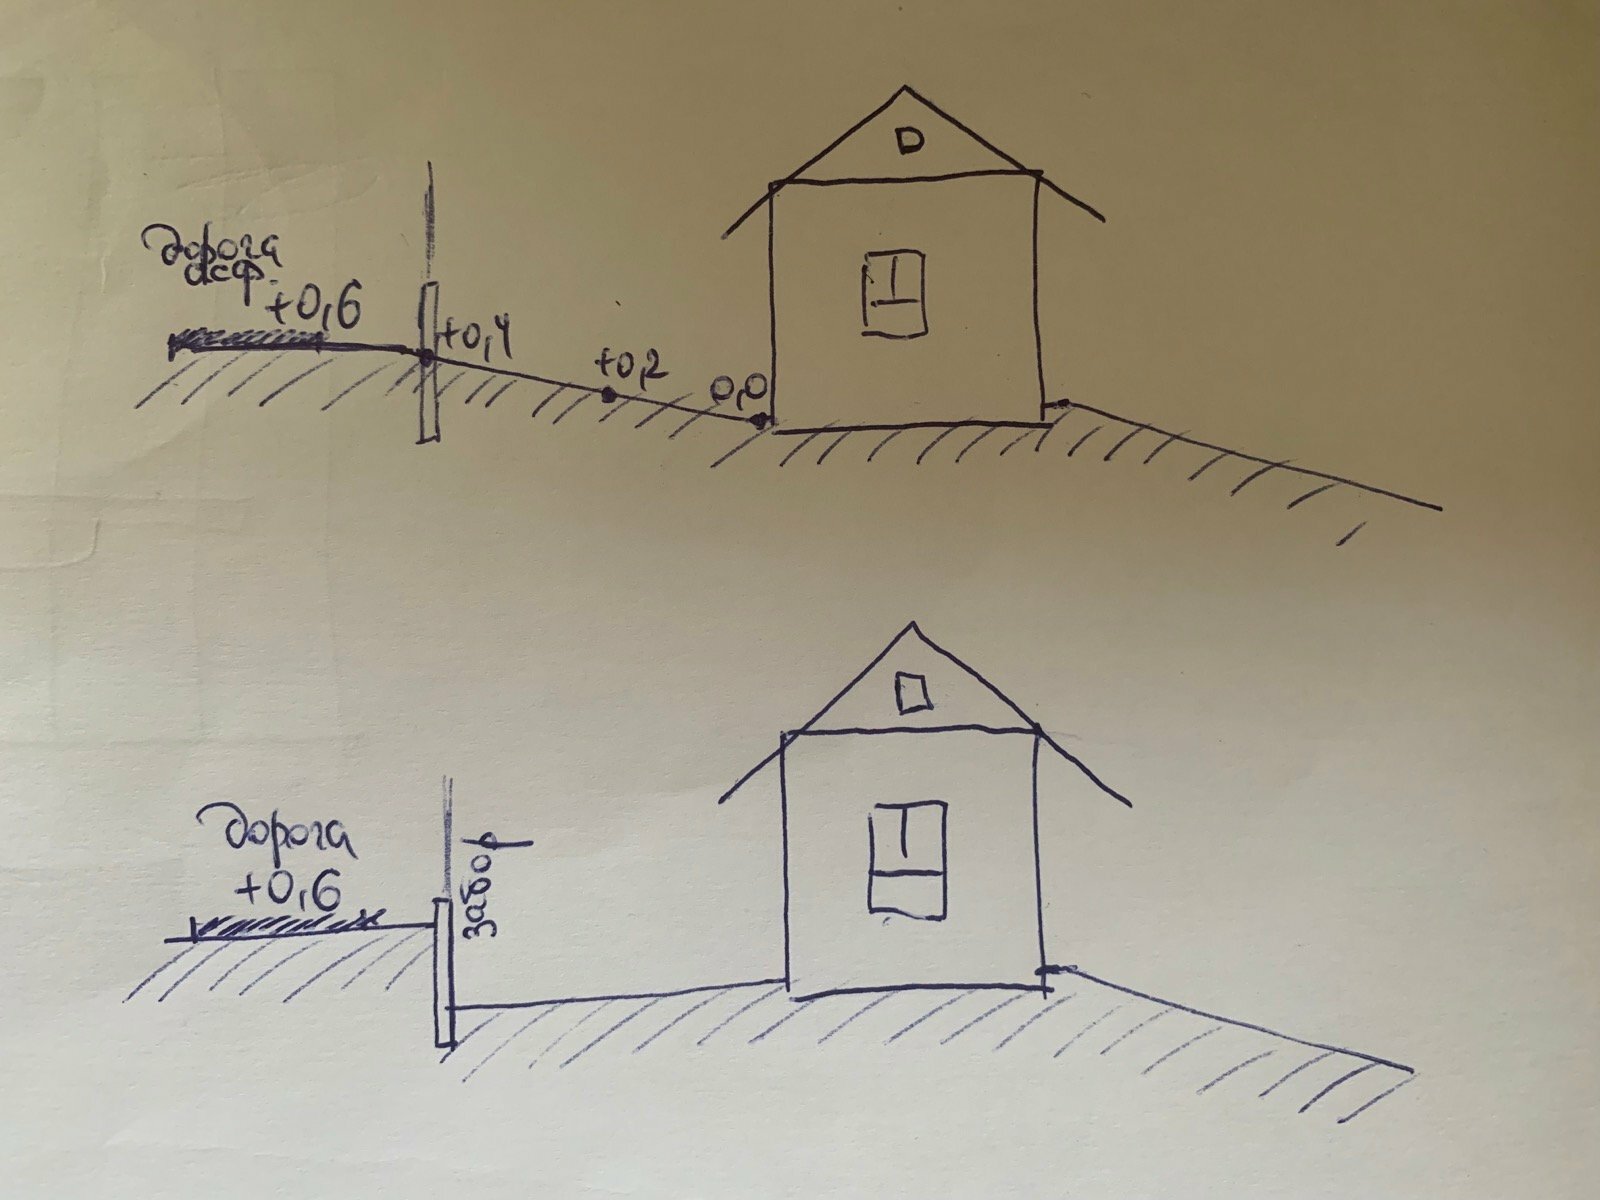 дорога
асф.
+0,6
+0,4
+0,2
0,0
дорога
+0,6
забор